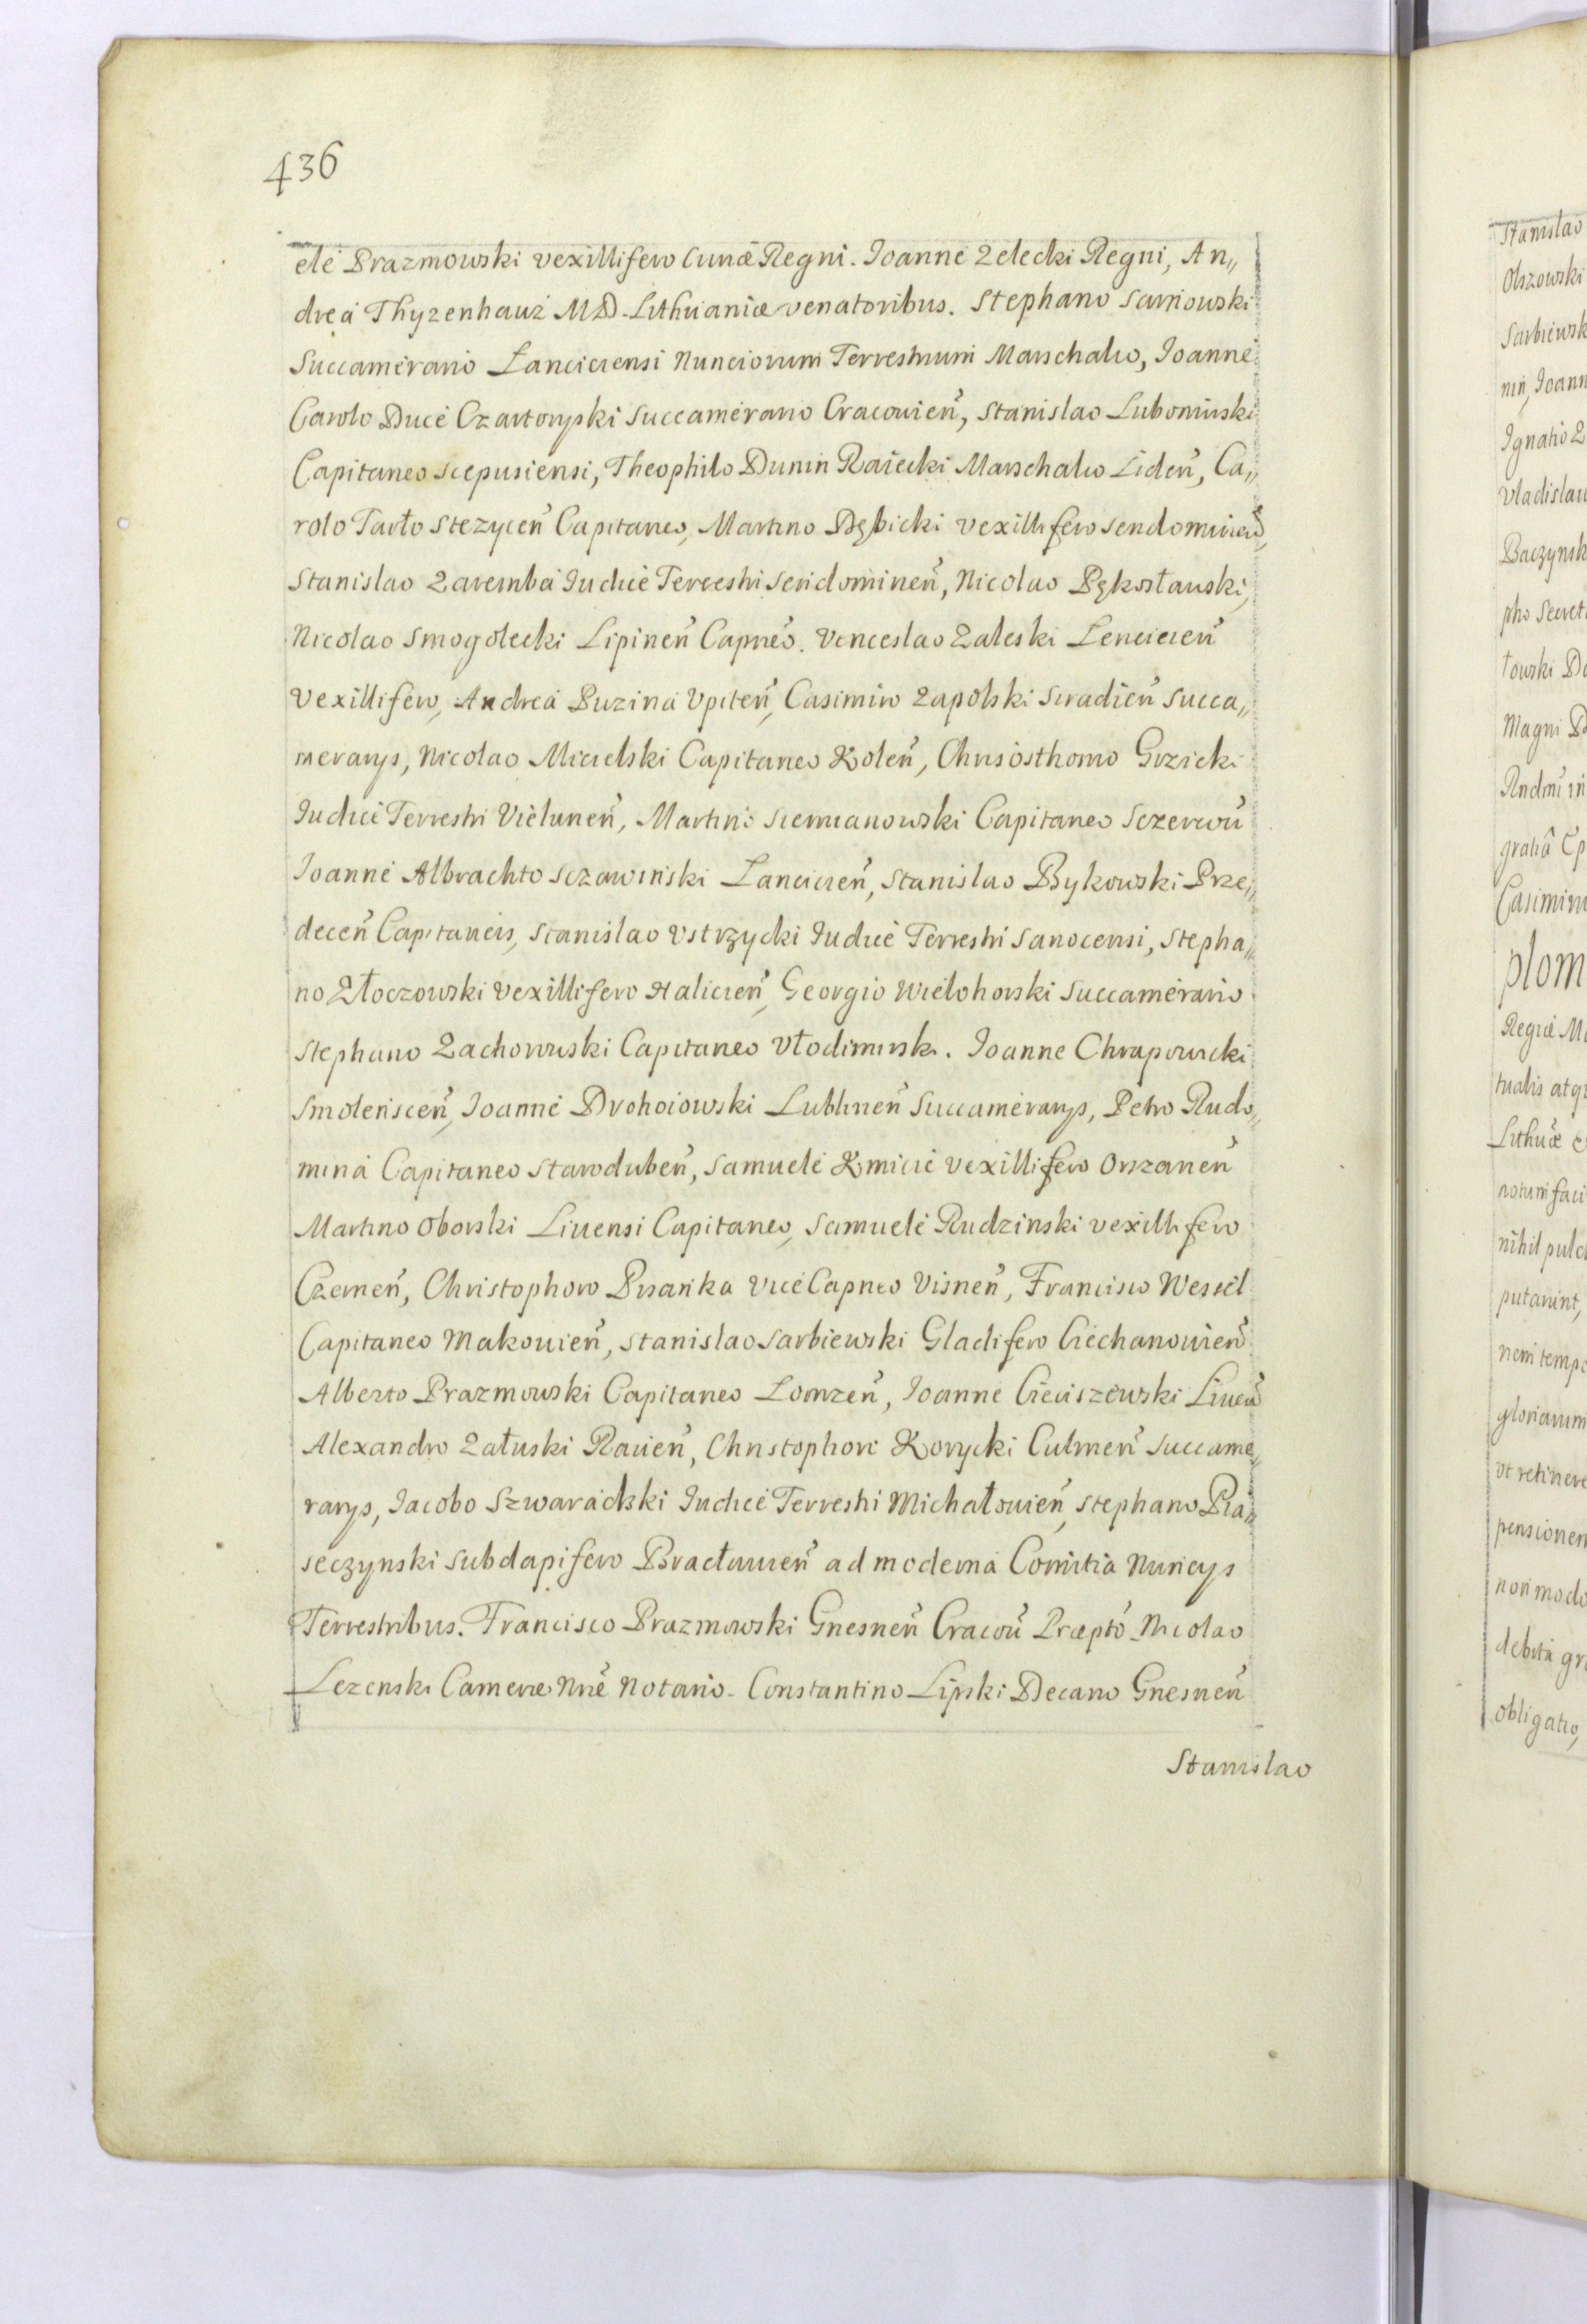 436
ele Prazmowski vexillifero Curiæ Regni. Joanne Zelecki Regni, An„
drea Thyzenhauz M.D. Lithuaniæ venatoribus. Stephano Sarnowski
Succamerario Lanciciensi Nunciorum Terrestrium Marschalco, Joanne
Carolo Duce Czartoryski Succamerario Cracovien̄, Stanislao Lubomirski
Capitaneo Scepusiensi, Theophilo Dunin Raiecki Marschalco Liden̄, Ca„
rolo Tarło Stezycen̄ Capitaneo, Martino Dębicki vexillifero Sendomirien̄,
Stanislao Zaremba Iudice Terrestri Sendomirien̄, Nicolao Pękosławski,
Nicolao Smogolecki Lipinen̄ Capneo. Venceslao Zaleski Lencicien̄
Vexillifero, Andrea Puzina Upiten̄, Casimiro Zapolski Siradien̄ Succa„
merarys, Nicolao Micielski Capitaneo Kolen̄, Chrisosthomo Grzicki
Iudice Terrestri Vielunen̄, Martino Siemianowski Capitaneo Sczercou̅
Joanne Albrachto Sczawiński Lancicien̄, Stanislao Bykowski Prze„
decen̄ Capitaneis, Stanislao Ustrzycki Iudice Terrestri Sanocensi, Stepha„
no Złoczowski vexillifero Halicien̄, Georgio Wielohorski Succamerario
Stephano Zachorowski Capitaneo Włodimirsk. Joanne Chrapowicki
Smolenscen̄, Joanne Drohoiowski Lublinen̄ Succamerarys, Petro Rudo„
mina Capitaneo Staroduben̄, Samuele Kmicic vexillifero Orszanen̄
Martino Oborski Livensi Capitaneo, Samuele Rudzinski vexillifero
Czernen̄, Christophoro Pisanka Vice Capneo Visnen̄, Francisco Wessel
Capitaneo Makovien̄, Stanislao Sarbiewski Gladifero Ciechanovien̄
Alberto Prazmowski Capitaneo Lomzen̄, Joanne Cieciszewski Liven̄
Alexandro Załuski Ravien̄, Christophoro Korycki Culmen̄ Succame„
rarys, Jacobo Szwaracki Iudice Terrestri Michałovien̄, Stephano Pia„
seczynski Subdapifero Bracłavien̄ ad moderna Comitia Nuncys
Terrestribus. Francisco Prazmowski Gnesnen̄ Cracou̅ Præpto. Nicolao
Lezenski Cameræ Nrē Notario. Constantino Lipski Decano Gnesnen̄
Stanislao
Stanislao
Olszowski
Sarbiewsk
nin, Joann
Ignatio Z
Vladislau
Baczynsk
pho Secret
towski D
Magni D
Rndmi in
gratiâ Ep
Casimiru
plom
Regiæ M
tualis atq
Lithuæ
notum faci
nihil pulc
putarint,
nem temp
gloriarum
ut retinere
pensionem
non modo
debita gr
obligatio,